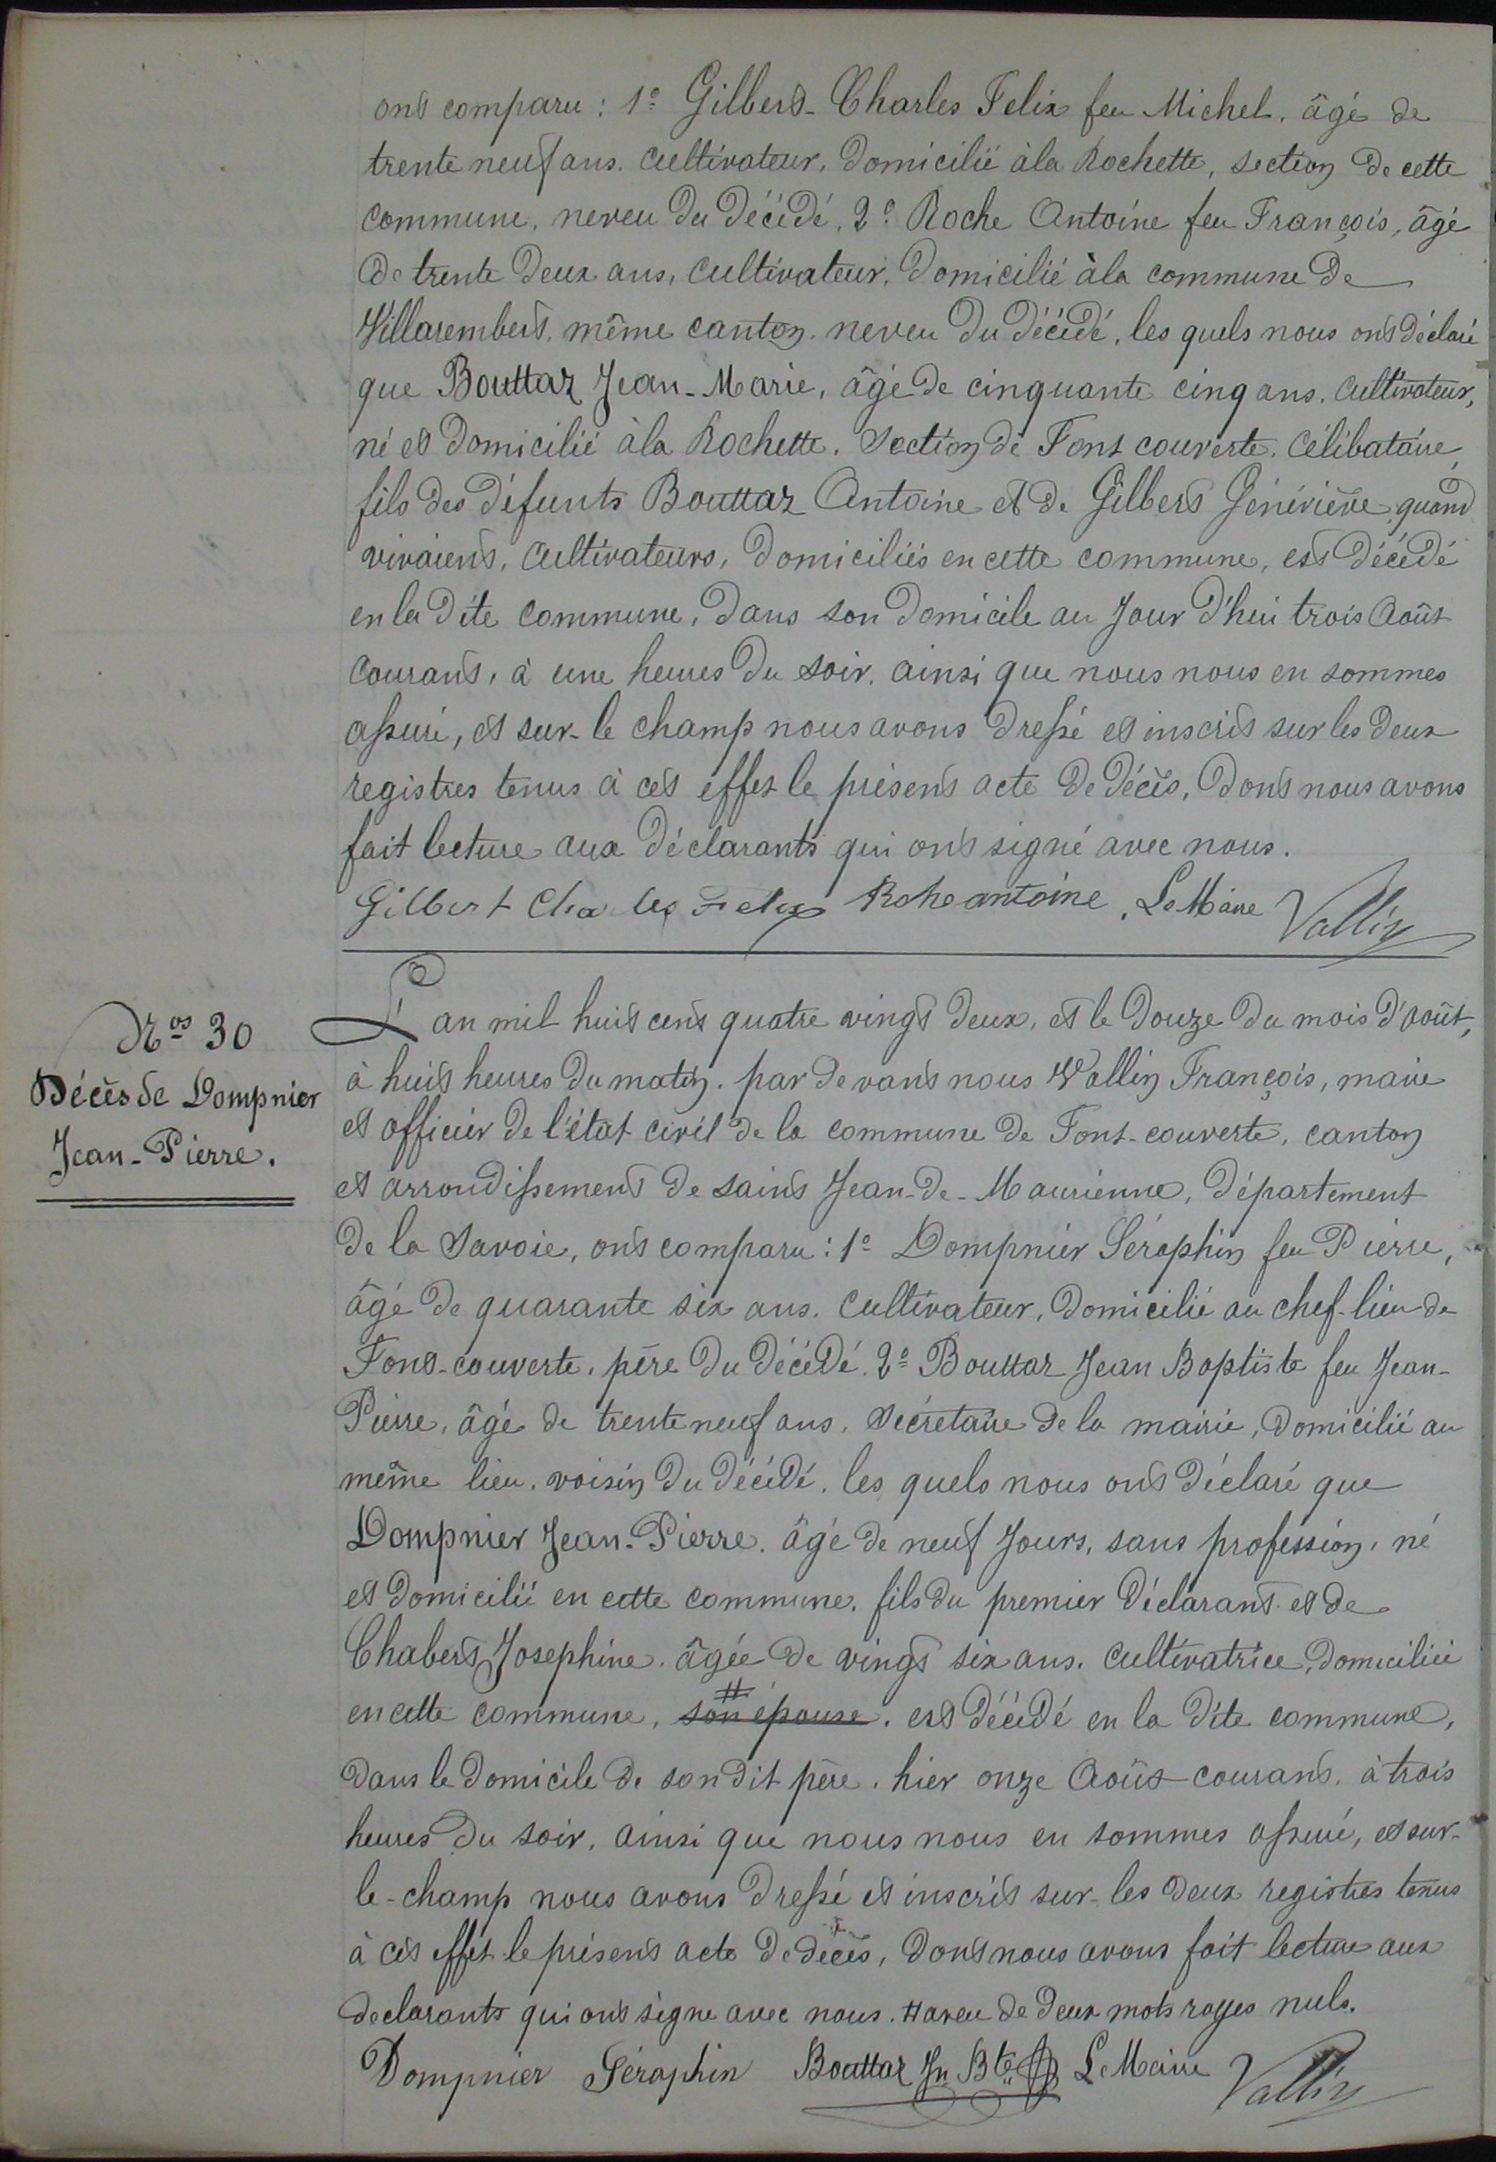 ont comparu : 1º Gilbert Charles Felix feu Michel, âgé de
trente neuf ans, cultivateur, domicilié à la Rochette, section de cette
commune, neveu du décédé, 2º Roche Antoine feu François, âgé
de trente deux ans, cultivateur, domicilié à la commune de
Villarembert, même canton, neveu du décédé, les quels nous ont déclaré
que Bouttaz Jean-Marie, âgé de cinquante cinq ans, cultivateur,
né et domicilié à la Rochette, section de Font couverte, célibataire,
fils des défunts Bouttaz Antoine et de Gilbert Généviève, quand
vivaient, cultivateurs, domiciliés en cette commune, est décédé
en la dite commune, dans son domicile au jour d'hui trois Août
courant, à une heures du soir, ainsi que nous nous en sommes
assuré, et sur-le champ nous avons dressé et inscrit sur les deux
registres tenus à cet effet le présent acte de décès, dont nous avons
fait lecture aux déclarants qui ont signé avec nous.
Gilbert Charles Felix Roche antoine, Le Maire Vallin
Nos 30
Décès de Dompnier
Jean-Pierre.
L'an mil huit cent quatre vingt deux, et le douze du mois d'août,
à huit heures du matin, par devant nous Vallin François, maire
et officier de l'état civil de la commune de Font-couverte, canton
et arrondissement de saint Jean-de-Maurienne, département
de la Savoie, ont comparu : 1º Dompnier Séraphin feu Pierre,
âgé de quarante six ans, cultivateur, domicilié au chef-lieu de
Font-couverte, père du décédé. 2º Bouttaz Jean Baptiste feu Jean-
Pierre, âgé de trente neuf ans, secrétaire de la mairie, domicilié au
même lieu, voisin du décédé, les quels nous ont déclaré que
Dompnier Jean-Pierre, âgé de neuf jours, sans profession, né
et domicilié en cette commune, fils du premier déclarant et de
Chabert Josephine, âgée de vingt six ans, cultivatrice, domiciliée
en cette commune, # son épouse, est décédé en la dite commune,
dans le domicile de son dit père, hier onze Août courant, à trois
heures du soir, ainsi que nous nous en sommes assuré, et sur-
le-champ nous avons dressé et inscrit sur-les deux registres tenus
à cet effet le présent acte de décès, dont nous avons fait lecture aux
declarants qui ont signe avec nous. # aveu de deux mots rayes nuls.
Dompnier Séraphin Bouttaz Jn Bte Le Maire Vallin